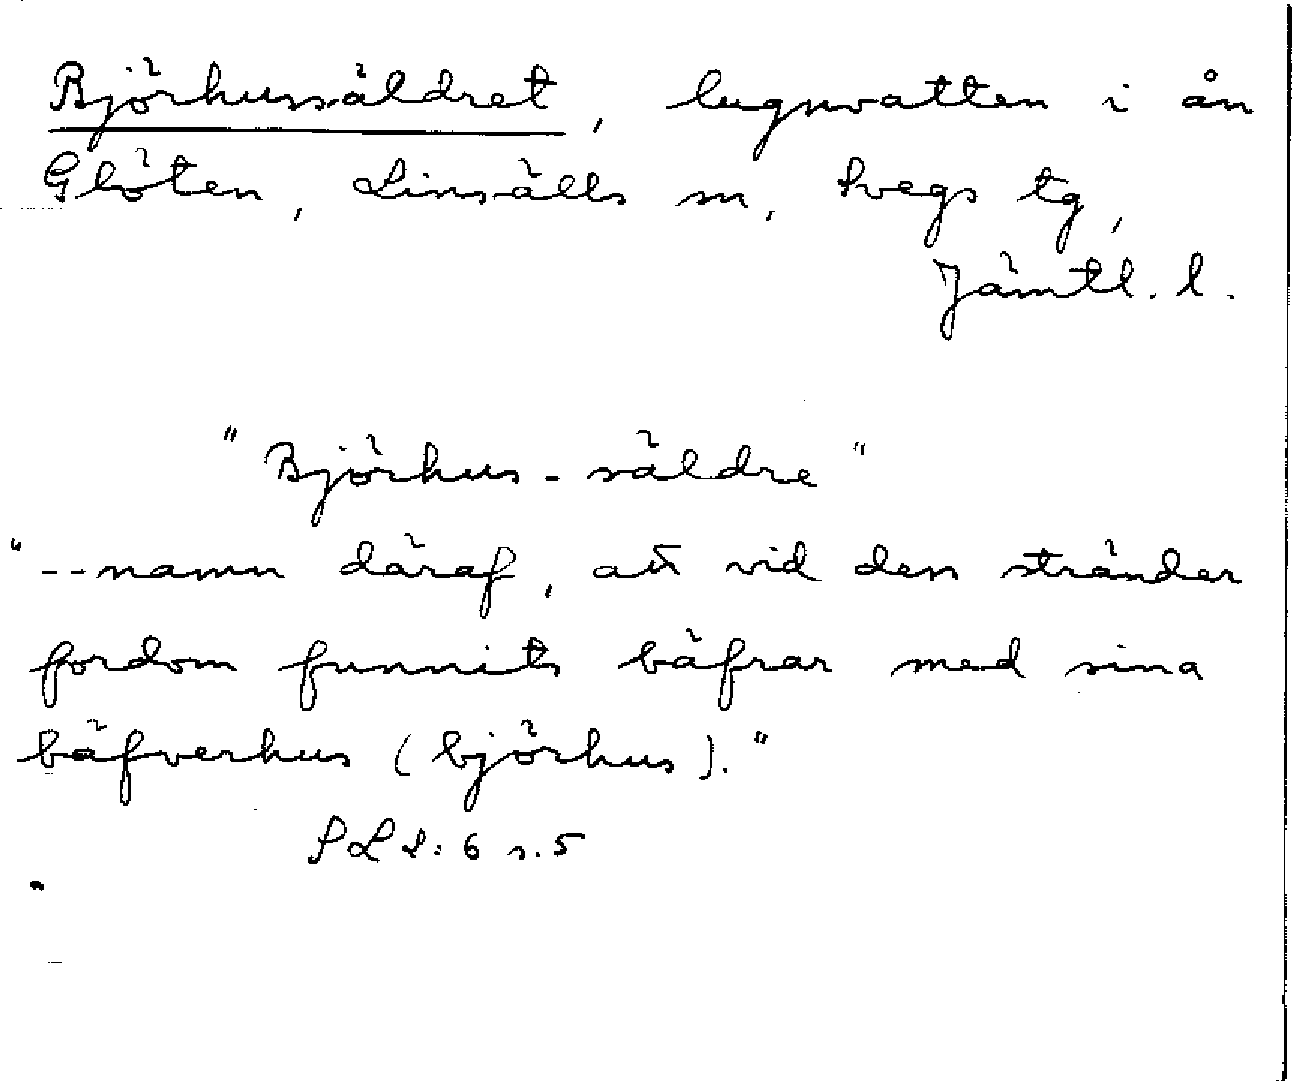 Björhussäldret, lugnvatten i ån
Glöten, Linsälls sn, Svegs tg,
Jämtl. l.
"Björhus-säldre"
"--namn däraf, att vid den stränder
fordom funnits bäfrar med sina
bäfverhus (björhus)."
s. 5